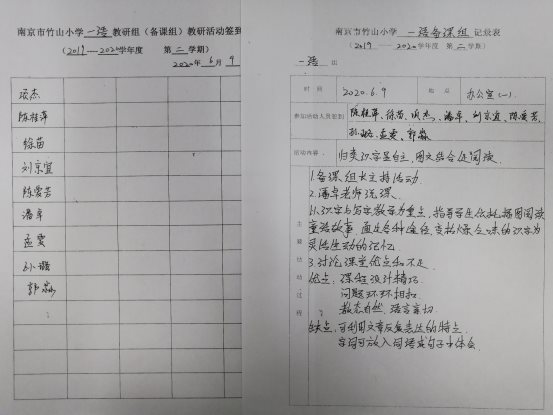 南京市竹山小学 一语 教研组（备课组）教研活动签到
（2019——2020学年度 第二学期）
2020年6月9
项杰
陈桂萍
徐苗
刘京宜
陈爱芳
潘卓
孟雯
孙璐
郭淼
南京市竹山小学 一语备课组 记录表
（2019——2020学年度 第二学期）
一语 组
时间 2020.6.9 地点 办公室(一).
参加活动人员签到 陈桂萍、徐苗、项杰、潘卓、刘京宜、陈爱芳、
孙璐、孟雯、郭淼
活动内容 归类识字显自主，图文结合促阅读.
主要活动过程
1.备课组长主持活动
2.潘卓老师说课.
以识字与写字教学为重点，指导学生依托插图阅读
童话故事，通过各种途径，变枯燥乏味的识字为
灵活生动的记忆.
3.讨论课堂优点和不足.
优点：课程设计精巧
问题环环相扣
教态自然，语言亲切.
缺点：可利用文章反复表达的特点.
字词可放入词语或句子中体会.